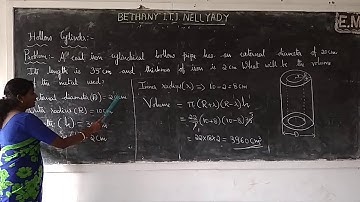 BETHANY I.T.I NELLYADY
E.M
Hollow Cylinder:-
Problem:- A cast iron cylindrical hollow pipe has an external diameter of 20cm
Its length is 35cm and thickness of iron is 2cm What will be the volume
the metal used?
ternal diameter (D) = 20cm
radius (R) = 10cm
(h) = 35cm
= 2cm
Inner radius (r) = 10-2 = 8cm
Volume = π(R+r)(R-r)h
= 22/7 (10+8)(10-8)35
= 22×18×2 = 3960cm³
D